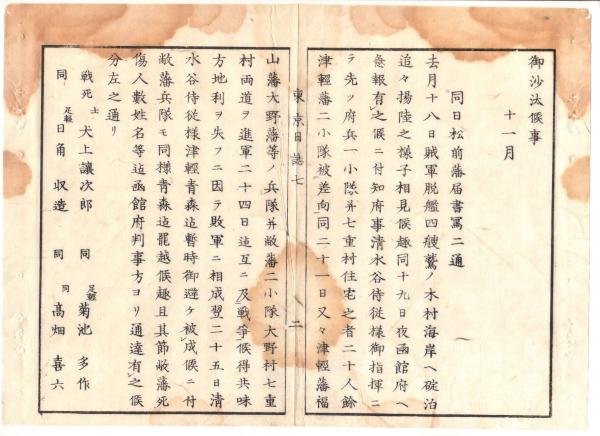 御沙汰候事
十一月
同日松前藩届書写二通
去月十八日賊軍脱艦四艘鷲ノ木村海岸ヘ碇泊
追々揚陸之様子相見候趣同十九日夜函館府ヘ
急報有之候ニ付知府事清水谷侍従様御指揮ニ
テ先ツ府兵一小隊并七重村住宅之者二十人餘
津軽藩二小隊被差向同二十一日又々津軽藩福
東京日誌七
二
山藩大野藩等ノ兵隊并敝藩二小隊大野村七重
村両道ヲ進軍二十四日迠互ニ及戦争候得共味
方地利ヲ失フニ因テ敗軍ニ相成翌二十五日清
水谷侍従様津軽青森迠暫時御避ケ被成候ニ付
敝藩兵隊モ同様青森迠罷越候趣且其節敝藩死
傷人數姓名等迠函館府判事方ヨリ通達有之候
分左之通リ
戦死 士 犬上讓次郎 同 足軽 菊池多作
同 足軽 日角収造 同 同 高畑喜六